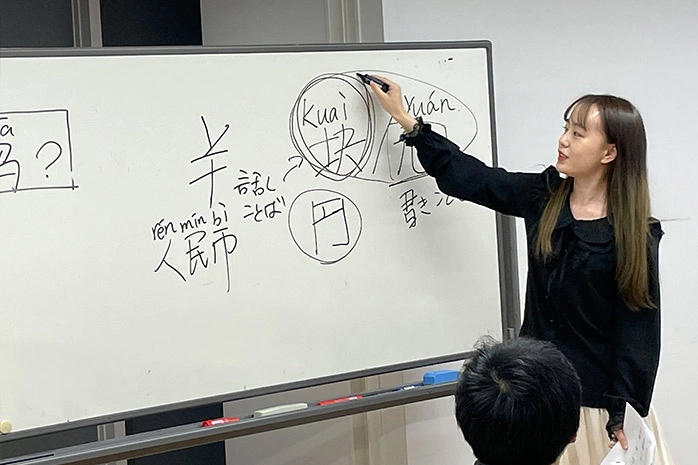 ?
¥
kuài
块
yuán
元
話し
ことば
書きこ
円
rén mín bì
人民币